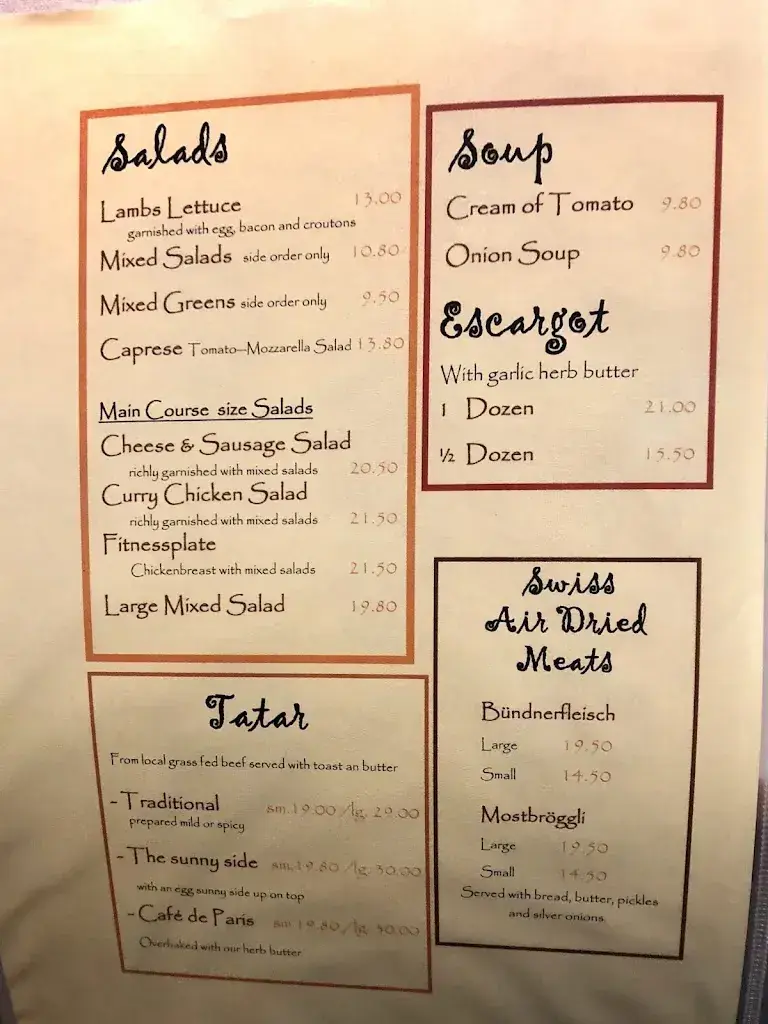 Salads
Lambs Lettuce 13.00
garnished with egg, bacon and croutons
Mixed Salads side order only 10.80
Mixed Greens side order only 9.50
Caprese Tomato–Mozzarella Salad 13.80
Main Course size Salads
Cheese & Sausage Salad
richly garnished with mixed salads 20.50
Curry Chicken Salad
richly garnished with mixed salads 21.50
Fitnessplate
Chickenbreast with mixed salads 21.50
Large Mixed Salad 19.80
Soup
Cream of Tomato 9.80
Onion Soup 9.80
Escargot
With garlic herb butter
1 Dozen 21.00
½ Dozen 15.50
Tatar
From local grass fed beef served with toast an butter
- Traditional sm. 19.00 /lg. 29.00
prepared mild or spicy
- The sunny side sm. 19.80 /lg. 30.00
with an egg sunny side up on top
- Café de Paris sm. 19.80 /lg. 30.00
Overbaked with our herb butter
Swiss
Air Dried
Meats
Bündnerfleisch
Large 19.50
Small 14.50
Mostbröggli
Large 19.50
Small 14.50
Served with bread, butter, pickles
and silver onions